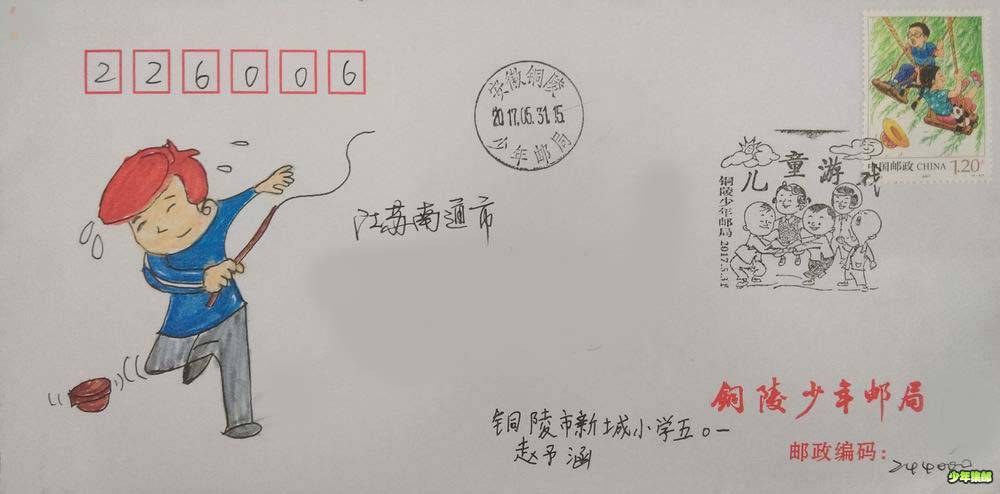 226006
安徽铜陵
2017.05.31.15
少年邮局
中国邮政 CHINA
1.20元
儿童游戏
铜陵少年邮局 2017.5.31
江苏南通市
铜陵少年邮局
铜陵市新城小学五〇一
赵予涵
邮政编码：244000
少年集邮